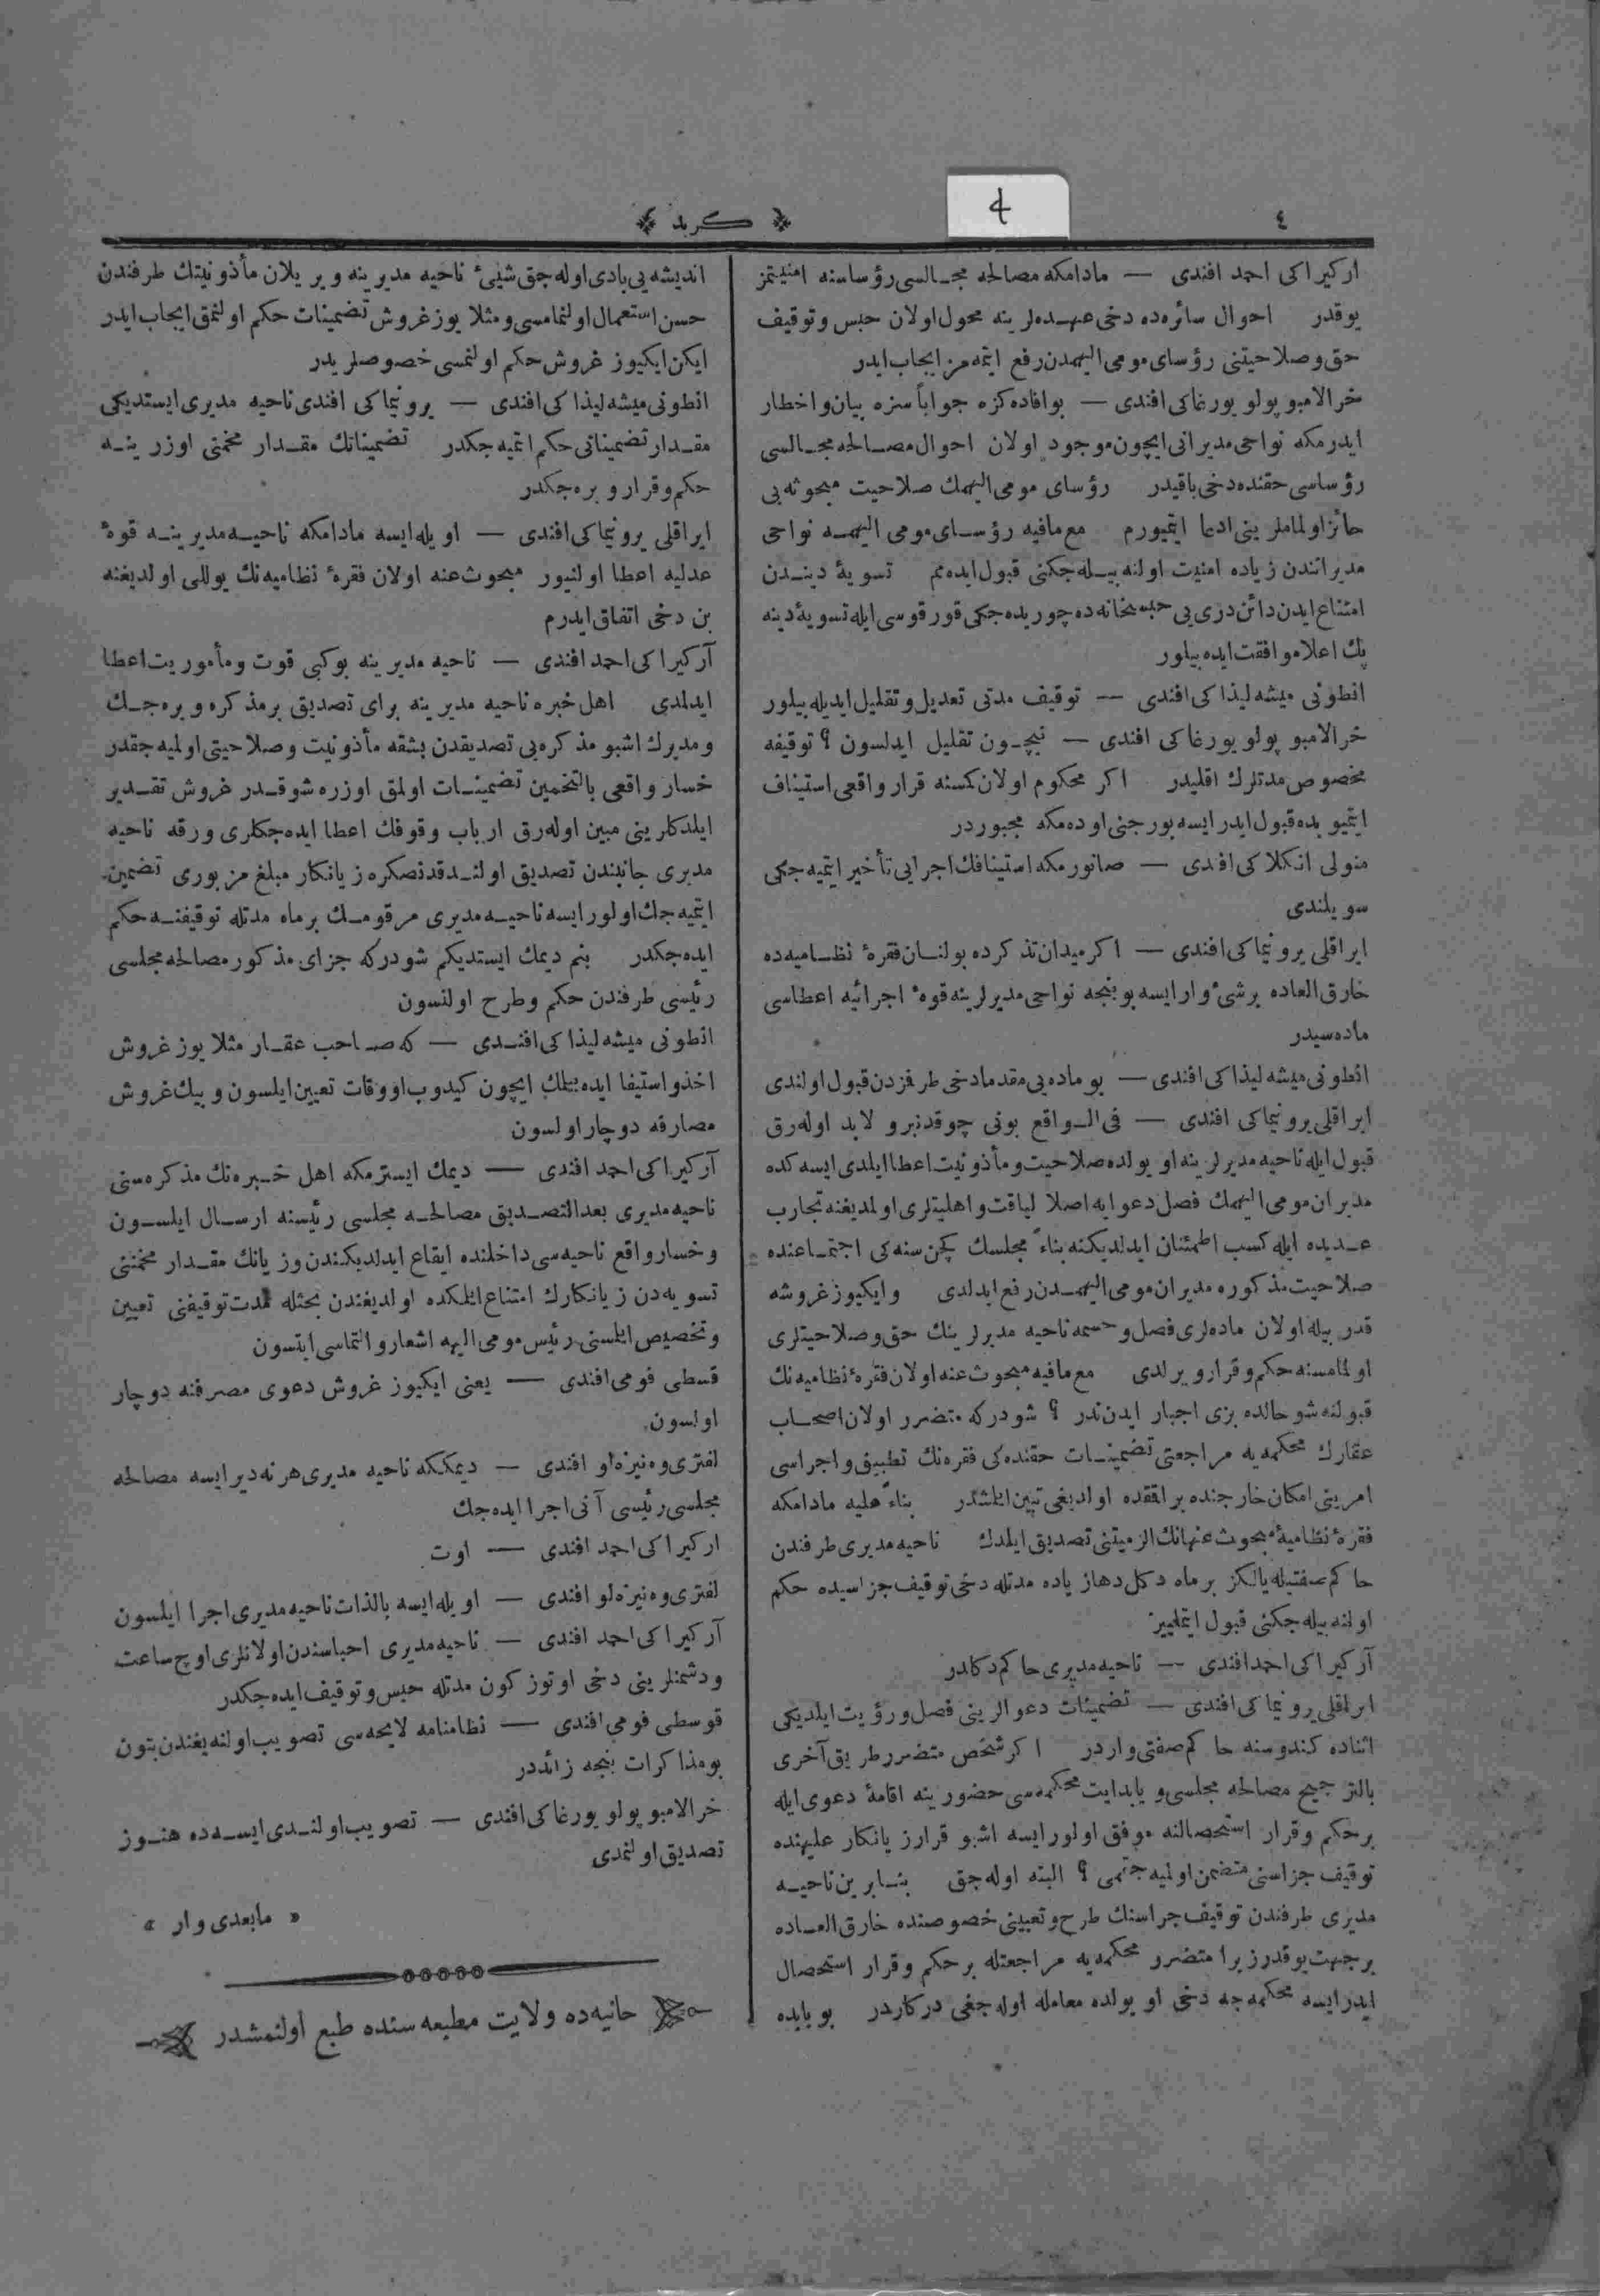 ٤
﴿ كريد ﴾
اركيراكى احمد افندى — مادامكه مصالحه مجالسى رؤساسنه امنيتمز
يوقدر احوال سائره‌ده دخى عهده‌لرينه محول اولان حبس و توقيف
حق و صلاحيتنى رؤساى مومى اليهمدن رفع ايتمه‌مز ايجاب ايدر
خرالامبو پولو يورغاكى افندى — بو افاده‌كزه جواباً سزه بيان و اخطار
ايدرمكه نواحى مديرانى ايچون موجود اولان احوال مصالحه مجالسى
رؤساسى حقنده دخى باقيدر رؤساى مومى اليهمك صلاحيت مبحوثه‌يى
حائز اولماملرينى ادعا ايتميورم مع مافيه رؤساى مومى اليهمه نواحى
مديراتندن زياده امنيت اولنه بيله‌جكنى قبول ايده‌مم تسويهٔ ديندن
امتناع ايدن دائن درى يى حبسخانه‌ده چوريده‌جكى قورقوسى ايله تسويهٔ دينه
پك اعلا موافقت ايده بيلور
انطونى ميشه ليذاكى افندى — توقيف مدتى تعديل و تقليل ايديله بيلور
خرالامبو پولو يورغاكى افندى — نيچون تقليل ايدلسون ؟ توقيفه
مخصوص مدتلرك اقليدر اكر محكوم اولان كمسنه قرار واقعى استيناف
ايتميوبده قبول ايدر ايسه بورجنى اوده‌مكه مجبوردر
منولى انكلاكى افندى — صانورمكه استينافك اجرايى تأخير ايتميه جكى
سويلندى
ايراقلى يرونيماكى افندى — اكر ميدان تذكرده بولنان فقرهٔ نظاميه‌ده
خارق العاده برشئ وار ايسه بو بنجه نواحى مديرلرينه قوهٔ اجرائيه اعطاسى
ماده‌سيدر
انطونى ميشه ليذاكى افندى — بو ماده‌يى مقدما دخى طرفزدن قبول اولندى
ايراقلى يرونيماكى افندى — فى الواقع بونى چوقدنبرو لابد اوله‌رق
قبول ايله ناحيه مديرلرينه او يولده صلاحيت و مأذونيت اعطا ايلدى ايسه كده
مديران مومى اليهمك فصل دعوايه اصلا لياقت و اهليتلرى اولمديغنه تجارب
عديده ايله كسب اطمئنان ايدلديكنه بناءً مجلسك كچن سنه كى اجتماعنده
صلاحيت مذكوره مديران مومى اليهمدن رفع ايدلدى و ايكيوز غروشه
قدر بيله اولان ماده‌لرى فصل و حسمه ناحيه مديرلرينك حق و صلاحيتلرى
اولمامسنه حكم و قرار ويرلدى مع مافيه مبحوث عنه اولان فقرهٔ نظاميه‌نك
قبولنه شو حالده بزى اجبار ايدن ندر ؟ شودركه متضرر اولان اصحاب
عقارك محكمه‌يه مراجعتى تضمينات حقنده‌كى فقره‌نك تطبيق و اجراسى
امرينى امكان خارجنده براقمقده اولديغى تبين ايلمشدر بناءً عليه مادامكه
فقرهٔ نظاميهٔ مبحوث عنهانك الزميتنى تصديق ايلدك ناحيه مديرى طرفندن
حاكم صفتيله يالكز بر ماه دكل دها زياده مدتله دخى توقيف جزاسيده حكم
اولنه بيله جكنى قبول ايتملييز
آركيراكى احمد افندى — ناحيه مديرى حاكم دكلدر
ايراقلى يرونيماكى افندى — تضمينات دعوالرينى فصل و رؤيت ايلديكى
اثناده كندوسنه حاكم صفتى واردر اكر شخص متضرر طريق آخرى
بالترجيح مصالحه مجلسى و يا بدايت محكمه‌سى حضورينه اقامهٔ دعوى ايله
بر حكم و قرار استحصالنه موفق اولور ايسه اشبو قرار زيانكار عليهنده
توقيف جزاسنى متضمن اولميه جقمى ؟ البته اوله‌جق بنابرين ناحيه
مديرى طرفندن توقيف جزاسنك طرح و تعيينى خصوصنده خارق العاده
بر جهت يوقدر زيرا متضررو محكمه‌يه مراجعتله بر حكم و قرار استحصال
ايدر ايسه محكمه‌جه دخى او يولده معامله اوله جغى دركاردر بو بابده
انديشه يى بادى اوله جق شيئ ناحيه مديرينه ويريلان مأذونيتك طرفندن
حسن استعمال اولنمامسى و مثلا يوز غروش تضمينات حكم اولنمق ايجاب ايدر
ايكن ايكيوز غروش حكم اولنمسى خصوصلريدر
انطونى ميشه ليذاكى افندى — يرونيماكى افندى ناحيه مديرى ايستديكى
مقدار تضميناتى حكم ايتميه جكدر تضميناتك مقدار مخمنى اوزرينه
حكم و قرار ويره جكدر
ايراقلى يرونيماكى افندى — اويله ايسه مادامكه ناحيه مديرينه قوهٔ
عدليه اعطا اولنيور مبحوث عنه اولان فقرهٔ نظاميه‌نك يوللى اولديغنه
بن دخى اتفاق ايدرم
آركيراكى احمد افندى — ناحيه مديرينه بوكبى قوت و مأموريت اعطا
ايدلمدى اهل خبره ناحيه مديرينه براى تصديق بر مذكره ويره جك
و مديرك اشبو مذكره‌يى تصديقدن بشقه مأذونيت و صلاحيتى اولميه جقدر
خسار واقعى بالتخمين تضمينات اولمق اوزره شوقدر غروش تقدير
ايلدكلرينى مبين اوله‌رق ارباب وقوفك اعطا ايده جكلرى ورقه ناحيه
مديرى جانبندن تصديق اولندقدنصكره زيانكار مبلغ مزبورى تضمين
ايتميه جك اولور ايسه ناحيه مديرى مرقومك بر ماه مدتله توقيفنه حكم
ايده جكدر بنم ديمك ايستديكم شودركه جزاى مذكور مصالحه مجلسى
رئيسى طرفندن حكم و طرح اولنسون
انطونى ميشه ليذاكى افندى — كه صاحب عقار مثلا يوز غروش
اخذ و استيفا ايده بيلمك ايچون كيدوب اووقات تعيين ايلسون و بيك غروش
مصارفه دوچار اولسون
آركيراكى احمد افندى — ديمك ايسترمكه اهل خبره‌نك مذكره‌سنى
ناحيه مديرى بعد التصديق مصالحه مجلسى رئيسنه ارسال ايلسون
و خسار واقع ناحيه‌سى داخلنده ايقاع ايدلديكندن و زيانك مقدار مخمننى
تسويه‌دن زيانكارك امتناع ايلمكده اولديغندن بحثله مدت توقيفنى تعيين
و تخصيص ايلمسنى رئيس مومى اليهه اشعار و التماس ايتسون
قسطى فومى افندى — يعنى ايكيوز غروش دعوى مصرفنه دوچار
اولسون
لفترى وه‌نيزه‌لو افندى — ديمككه ناحيه مديرى هر نه دير ايسه مصالحه
مجلسى رئيسى آنى اجرا ايده جك
اركيراكى احمد افندى — اوت
لفترى وه‌نيزه‌لو افندى — اويله ايسه بالذات ناحيه مديرى اجرا ايلسون
آركيراكى احمد افندى — ناحيه مديرى احباسندن اولانلرى اوچ ساعت
و دشمنلرينى دخى اوتوز كون مدتله حبس و توقيف ايده جكدر
قوسطى فومى افندى — نظامنامه لايحه‌سى تصويب اولنديغندن بتون
بو مذاكرات بنجه زائددر
خرالامبو پولو يورغاكى افندى — تصويب اولندى ايسه‌ده هنوز
تصديق اولنمدى
« مابعدى وار »
حانيه‌ده ولايت مطبعه سنده طبع اولنمشدر